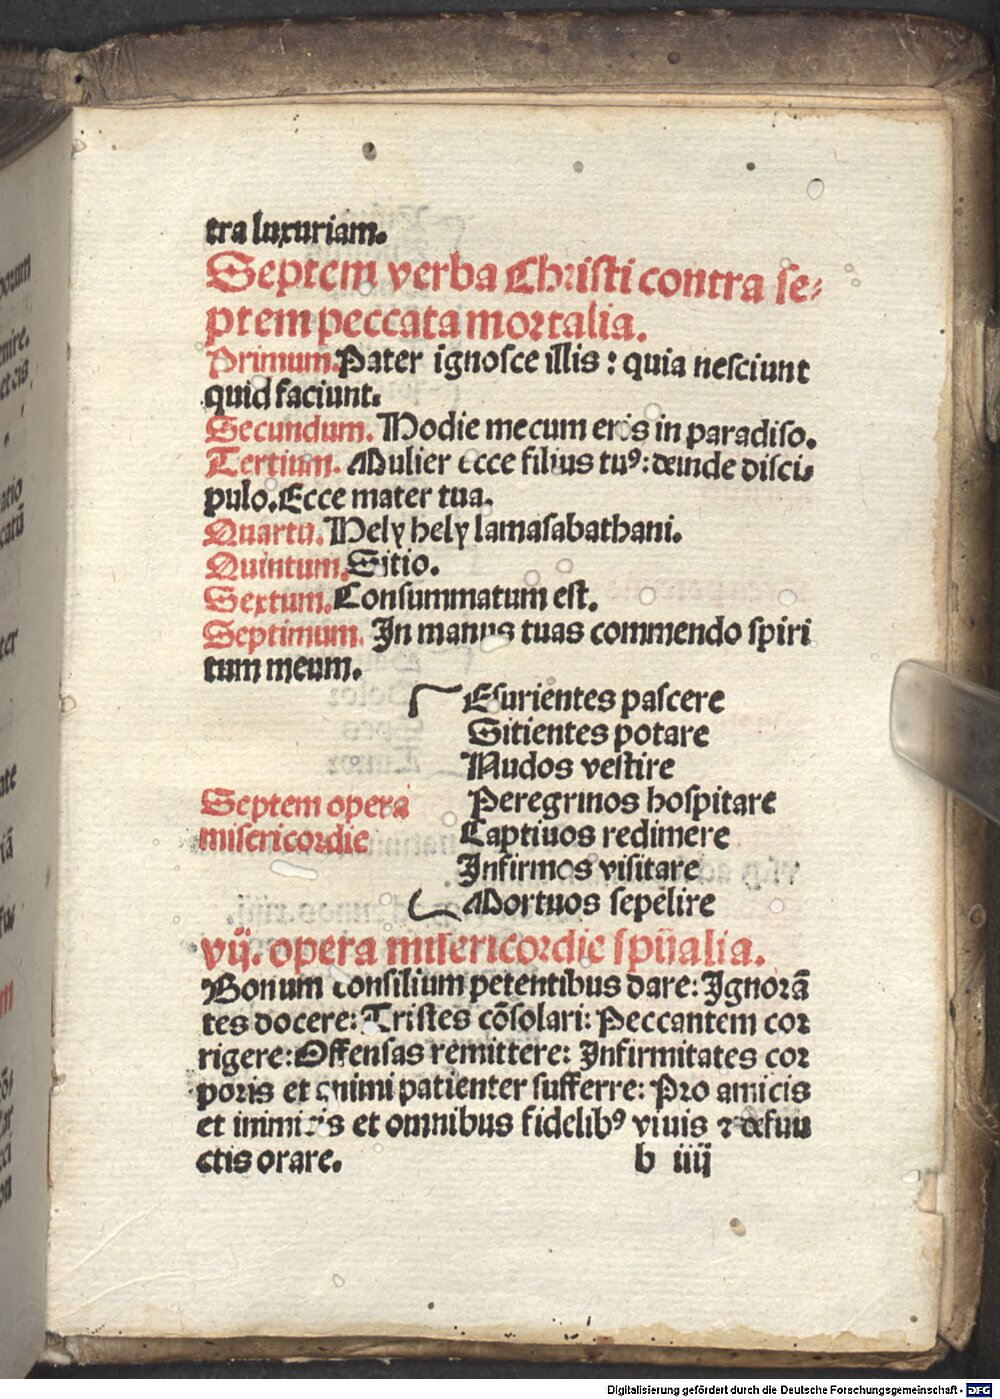 tra luxuriam.
Septem verba Christi contra se⸗
ptem peccata mortalia.
Primum. Pater ignosce illis: quia nesciunt
quid faciunt.
Secundum. Hodie mecum eris in paradiso.
Tertium. Mulier ecce filius tuꝰ: deinde disci⸗
pulo. Ecce mater tua.
Quartū. Hely hely lamasabathani.
Quintum. Sitio.
Sextum. Consummatum est.
Septimum. In manus tuas commendo spiri
tum meum.
Esurientes pascere
Sitientes potare
Nudos vestire
Septem opera Peregrinos hospitare
misericordie Captiuos redimere
Infirmos visitare
Mortuos sepelire
vij. opera misericordie spūalia.
Bonum consilium petentibus dare: Ignorā
tes docere: Tristes cōsolari: Peccantem cor
rigere: Offensas remittere: Infirmitates cor
poris et animi patienter sufferre: Pro amicis
et inimicis et omnibus fidelibꝰ viuis ⁊ defun
ctis orare.
b iiij
Digitalisierung gefördert durch die Deutsche Forschungsgemeinschaft - DFG